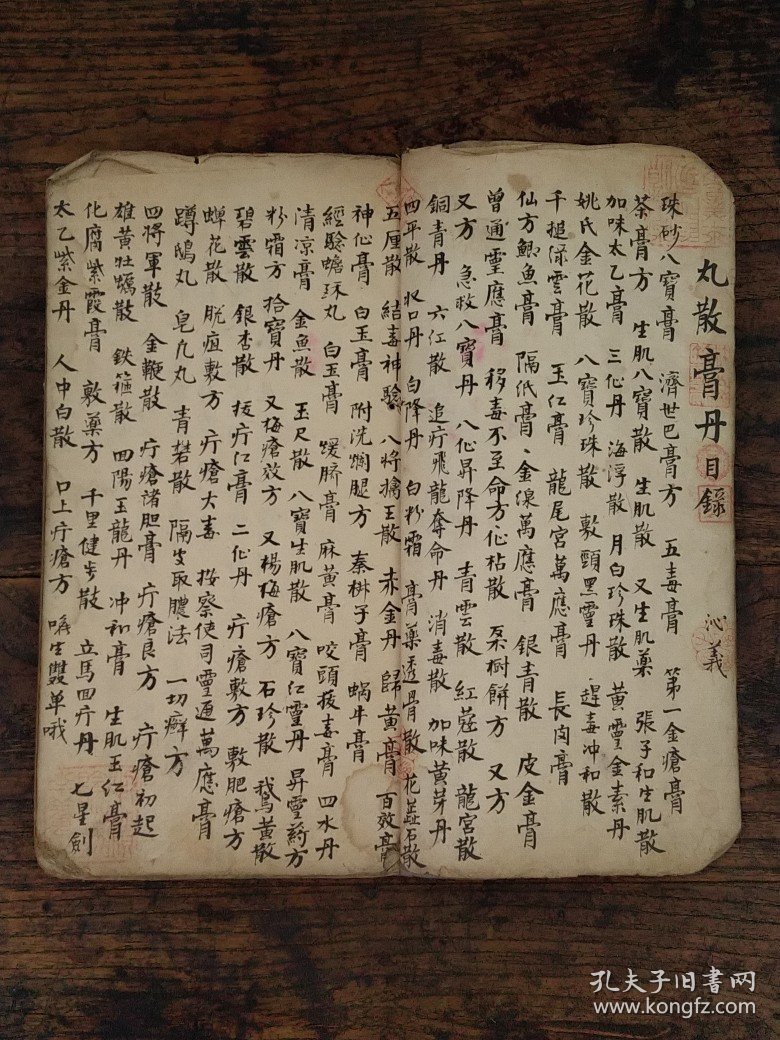 丸散膏丹目錄 沁義
珠砂八寶膏 濟世巴膏方 五毒膏 第一金瘡膏
茶膏方 生肌八寶散 生肌散 又生肌藥 張子和生肌散
加味太乙膏 三仙丹 海浮散 月白珍珠散 黃靈金素丹
姚氏金花散 八寶珍珠散 敷頸黑靈丹 趕毒冲和散
千搥绿雲膏 玉仁膏 龍尾宮萬應膏 長肉膏
仙方鯽魚膏 隔紙膏 金線萬應膏 銀青散 皮金膏
曾通靈應膏 移毒不至命方 化粘散 桑樹餅方 又方
又方 急救八寶丹 八仙昇降丹 青雲散 紅蔻散 龍宮散
銅青丹 六仁散 追疔飛龍奪命丹 消毒散 加味黃芽丹
四平散 收口丹 白降丹 白粉霜 膏藥透骨散 花蕊石散
五厘散 結毒神驗 八将擒王散 赤金丹 歸黃膏 百效膏
神仙膏 白玉膏 附洗爛腿方 秦椒子膏 蝸牛膏
經驗蟾酥丸 白玉膏 煖臍膏 麻黃膏 咬頭拔毒膏 四水丹
清凉膏 金魚散 玉尺散 八寶生肌散 八寶仁靈丹 昇靈葯方
粉霜方 拾寶丹 又梅瘡效方 又楊梅瘡方 石珍散 鵞黃散
碧雲散 銀杏散 拔疔仁膏 二仙丹 疔瘡敷方 敷肥瘡方
蝉花散 脱疽敷方 疔瘡大毒 按察使司靈通萬應膏
蹲鴟丸 皂凡丸 青礬散 隔皮取膿法 一切癬方
四將軍散 金鞭散 疔瘡諸胆膏 疔瘡良方 疔瘡初起
雄黃牡蠣散 鉄箍散 四陽玉龍丹 冲和膏 生肌玉仁膏
化腐紫霞膏 敷藥方 千里健步散 立馬四疔丹 七星劍
太乙紫金丹 人中白散 口上疔瘡方 雙單哦
孔夫子旧書网
www.kongfz.com